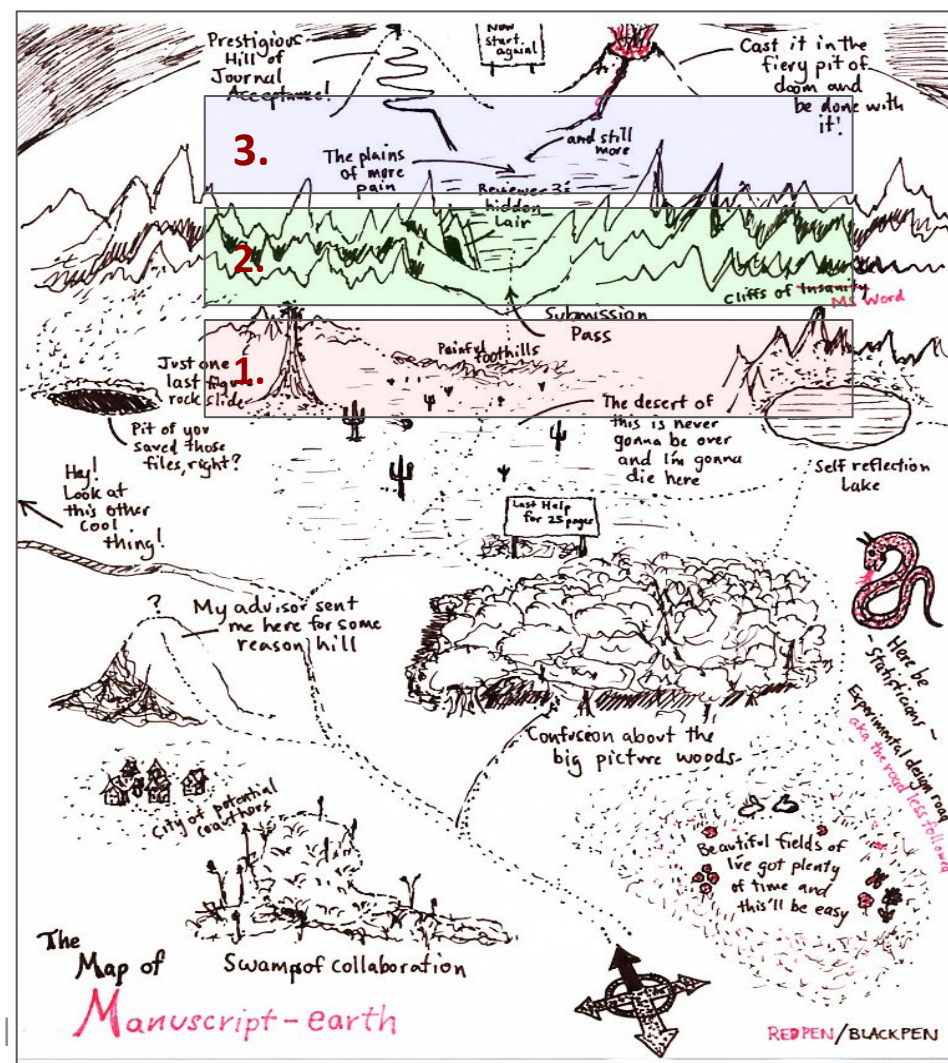 Prestigious
Hill of
Journal
Acceptance!
Now
start
again!
Cast it in the
fiery pit of
doom and
be done with
it!
3.
and still
more
The plains
of more
pain
Reviewer 3's
hidden
Lair
2.
Cliffs of Insanity
MS Word
Submission
Pass
1.
Just one
last figure
rock slide
Painful
foothills
Pit of you
saved those
files, right?
The desert of
this is never
gonna be over
and I'm gonna
die here
Self reflection
Lake
Hey!
Look at
this other
cool
thing!
Last Help
for 25 pages
?
My advisor sent
me here for some
reason hill
Here be
~ Statisticians ~
Experimental design road
aka the road less followed
Confusion about the
big picture woods
City of potential
coauthors
Beautiful fields of
I've got plenty
of time and
this'll be easy
Swamps of Collaboration
The
Map of
Manuscript-earth
REDPEN/BLACKPEN